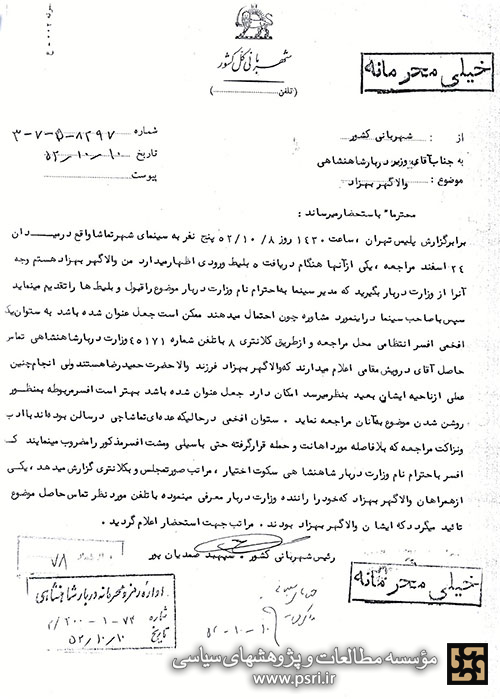 شهربانی کل کشور
(تلفن )
خیلی محرمانه
شماره ۸۲۹۷-۵-۷-۳
تاریخ ۵۲/۱۰/۱۰
پیوست
از : شهربانی کشور
به جناب آقای وزیر دربار شاهنشاهی
موضوع : والاگهر بهزاد
محترماً باستحضار میرساند :
برابر گزارش پلیس تهران ، ساعت ۱۴۳۰ روز ۵۲/۱۰/۸ پنج نفر به سینمای شهر تماشا واقع در میدان
۲۴ اسفند مراجعه ، یکی از آنها هنگام دریافت ۵ بلیط ورودی اظهار میدارد من والاگهر بهزاد هستم وجه
آنرا از وزارت دربار بگیرید که مدیر سینما به احترام نام وزارت دربار موضوع را قبول و بلیط ها را تقدیم مینماید
سپس با صاحب سینما در اینمورد مشاوره چون احتمال میدهند ممکن است جعل عنوان شده باشد به ستوان یکم
افخمی افسر انتظامی محل مراجعه و از طریق کلانتری ۸ با تلفن شماره ۴۵۱۷۱ وزارت دربار شاهنشاهی تماس
حاصل آقای درویش مقامی اعلام میدارند که والاگهر بهزاد فرزند والاحضرت حمیدرضا هستند ولی انجام چنین
عملی از ناحیه ایشان بعید بنظر میرسد امکان دارد جعل عنوان شده باشد بهتر است افسر مربوطه بمنظور
روشن شدن موضوع به آنان مراجعه نماید . ستوان افخمی در حالیکه عده ای تماشاچی در سالن بوده اند با ادب
و نزاکت مراجعه که بلافاصله مورد اهانت و حمله قرار گرفته حتی با سیلی و مشت افسر مذکور را مضروب مینمایند که
افسر با احترام نام وزارت دربار شاهنشاهی سکوت اختیار ، مراتب صورتمجلس و بکلانتری گزارش میدهد ، یکی
از همراهان والاگهر بهزاد که خود را راننده وزارت دربار معرفی مینموده با تلفن مورد نظر تماس حاصل موضوع
تائید میگردد که ایشان والاگهر بهزاد بودند . مراتب جهت استحضار اعلام گردید .
رئیس شهربانی کشور . سپهبد صمدیان پور
خیلی محرمانه
۷۸
اداره رمز و محرمانه دربار شاهنشاهی
شماره
تاریخ ۵۲/۱۰/۱۰
۵۲-۱۰-۱۰
مؤسسه مطالعات و پژوهشهای سیاسی
www.psri.ir